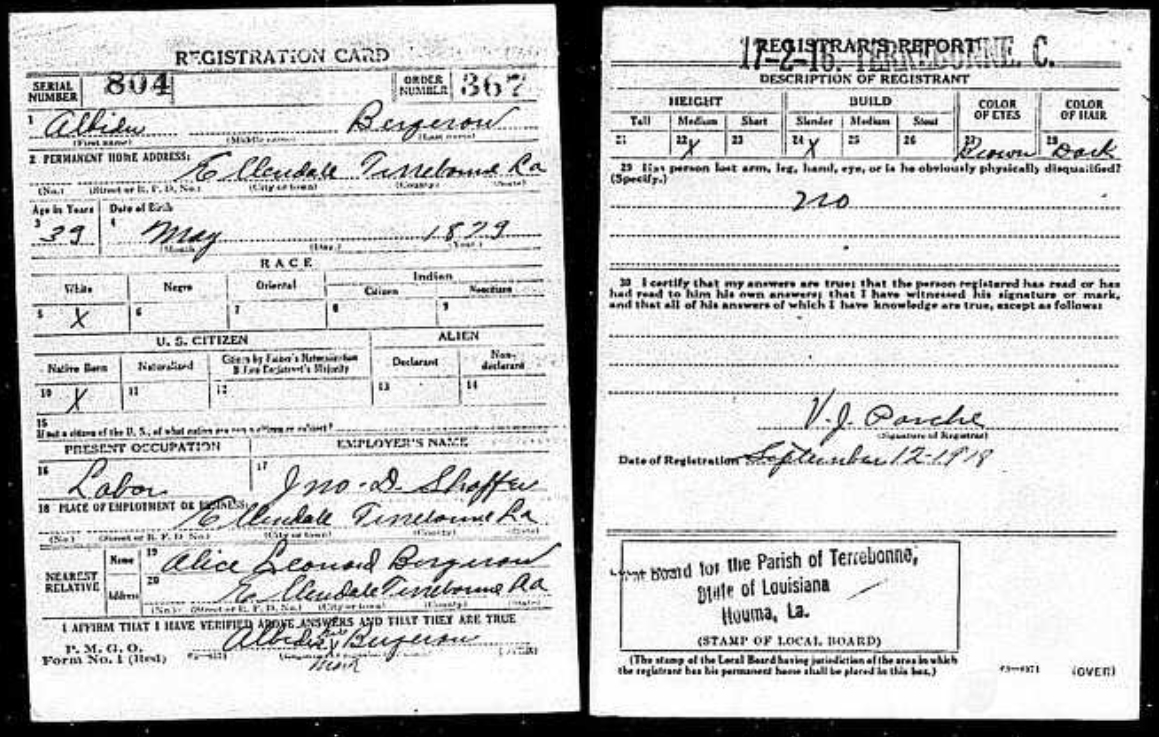 REGISTRATION CARD
SERIAL NUMBER 804 ORDER NUMBER 367
1 Albidu Bergeron
(First name) (Middle name) (Last name)
2 PERMANENT HOME ADDRESS:
Ellendale Terrebonne La
(No.) (Street or R. F. D. No.) (City or town) (County) (State)
Age in Years Date of Birth
3 39 4 May 1879
(Month) (Day) (Year)
RACE
White Negro Oriental Indian
Citizen Noncitizen
5 X 6 7 8 9
U. S. CITIZEN ALIEN
Native Born Naturalized Citizen by Father's Naturalization Before Registrant's Majority Declarant Non-declarant
10 X 11 12 13 14
15 If not a citizen of the U. S., of what nation are you a citizen or subject?
PRESENT OCCUPATION EMPLOYER'S NAME
16 Labor 17 Jno. D. Shaffer
18 PLACE OF EMPLOYMENT OR BUSINESS:
Ellendale Terrebonne La
(No.) (Street or R. F. D. No.) (City or town) (County) (State)
NEAREST RELATIVE
Name 19 Alice Leonard Bergeron
Address 20 Ellendale Terrebonne La
(No.) (Street or R. F. D. No.) (City or town) (County) (State)
I AFFIRM THAT I HAVE VERIFIED ABOVE ANSWERS AND THAT THEY ARE TRUE
P. M. G. O.
Form No. 1 (Red)
Albidu his X Bergeron
mark
REGISTRAR'S REPORT
17-2-16. TERREBONNE. C.
DESCRIPTION OF REGISTRANT
HEIGHT BUILD COLOR OF EYES COLOR OF HAIR
Tall Medium Short Slender Medium Stout
21 22 X 23 24 X 25 26 27 Brown 28 Dark
29 Has person lost arm, leg, hand, eye, or is he obviously physically disqualified?
(Specify.)
no
30 I certify that my answers are true; that the person registered has read or has
had read to him his own answers; that I have witnessed his signature or mark,
and that all of his answers of which I have knowledge are true, except as follows:
V. J. Porche
(Signature of Registrar)
Date of Registration September 12-1918
Local Board for the Parish of Terrebonne,
State of Louisiana
Houma, La.
(STAMP OF LOCAL BOARD)
(The stamp of the Local Board having jurisdiction of the area in which
the registrant has his permanent home shall be placed in this box.)
(OVER)